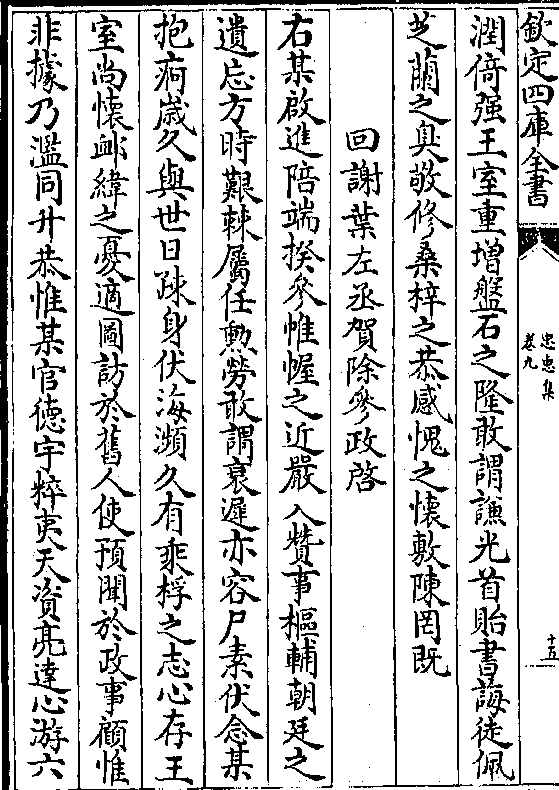 欽定四庫全書
忠惠集
卷九
十五
潤倚强王室重增盤石之隆敢謂謙光首貽書誨徒佩
芝蘭之臭敬修桑梓之恭感愧之懷敷陳罔既
回謝葉左丞賀除參政啓
右某啟進陪端揆參帷幄之近嚴入贊事樞輔朝廷之
遺忘方時艱棘屬任勲勞敢謂衰遲亦容尸素伏念某
抱痾歲久與世日疎身伏海瀕久有乘桴之志心存王
室尚懷䘏緯之憂適圖訪於舊人使預聞於政事顧惟
非據乃濫同升恭惟某官德宇粹夷天資亮達心游六